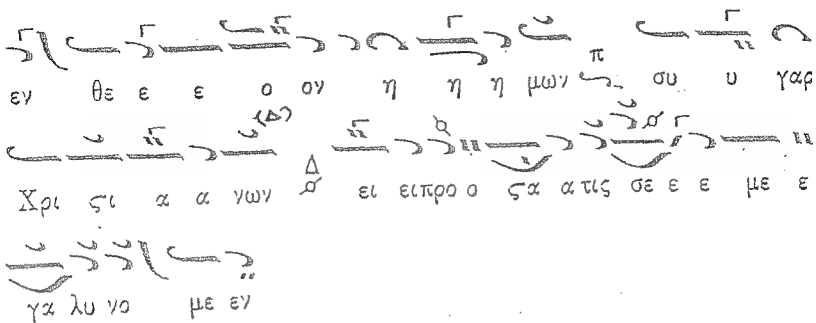 εν θε ε ε ο ον η η η μων π συ υ γαρ
Χρι ςι α α νων Δ ει ειπρο ο ςα α τις σε ε ε με ε
γα λυ νο με εν